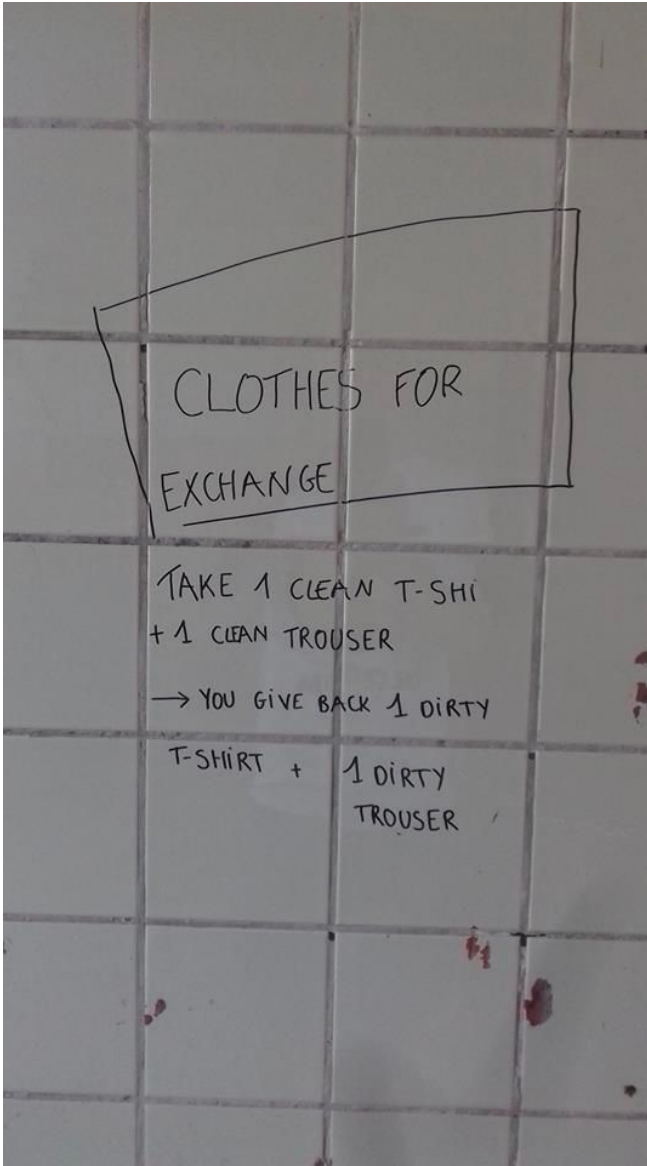 CLOTHES FOR
EXCHANGE
TAKE 1 CLEAN T-SHI
+ 1 CLEAN TROUSER
→ YOU GIVE BACK 1 DIRTY
T-SHIRT + 1 DIRTY
TROUSER